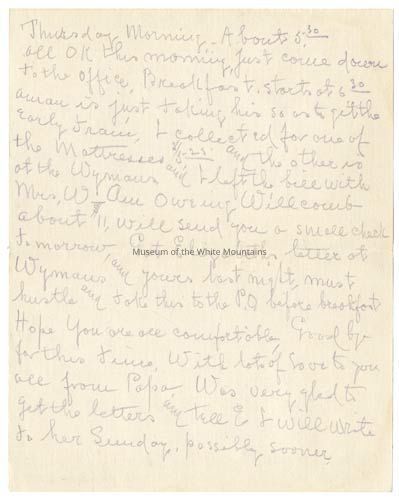 Thursday Morning, About 5.30
all OK this morning, just come down
to the office, Breakfast starts at 6 30
a man is just taking his so as to get the
Early Train, I collected for one of
the Mattresses and the other is
at the Wymans and I left the bill with
Mrs. W Am Owing Willcomb
about $11, will send you a small check
tomorrow, Got letter at
Museum of the White Mountains
Wymans and yours last night, must
hustle and take this to the P.O before breakfast
Hope you are all comfortable Good by
for this time, With lots of love to you
all from Papa Was very glad to
get the letters and tell E I will write
to her Sunday, possibly sooner,